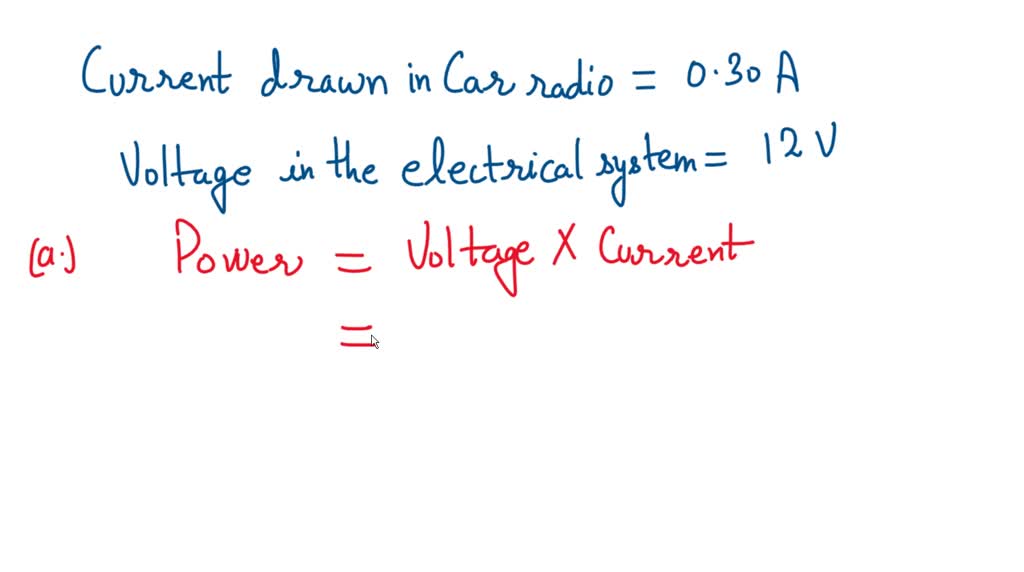 Current drawn in Car radio = 0.30 A
Voltage in the electrical system = 12 V
(a.) Power = Voltage X Current
=